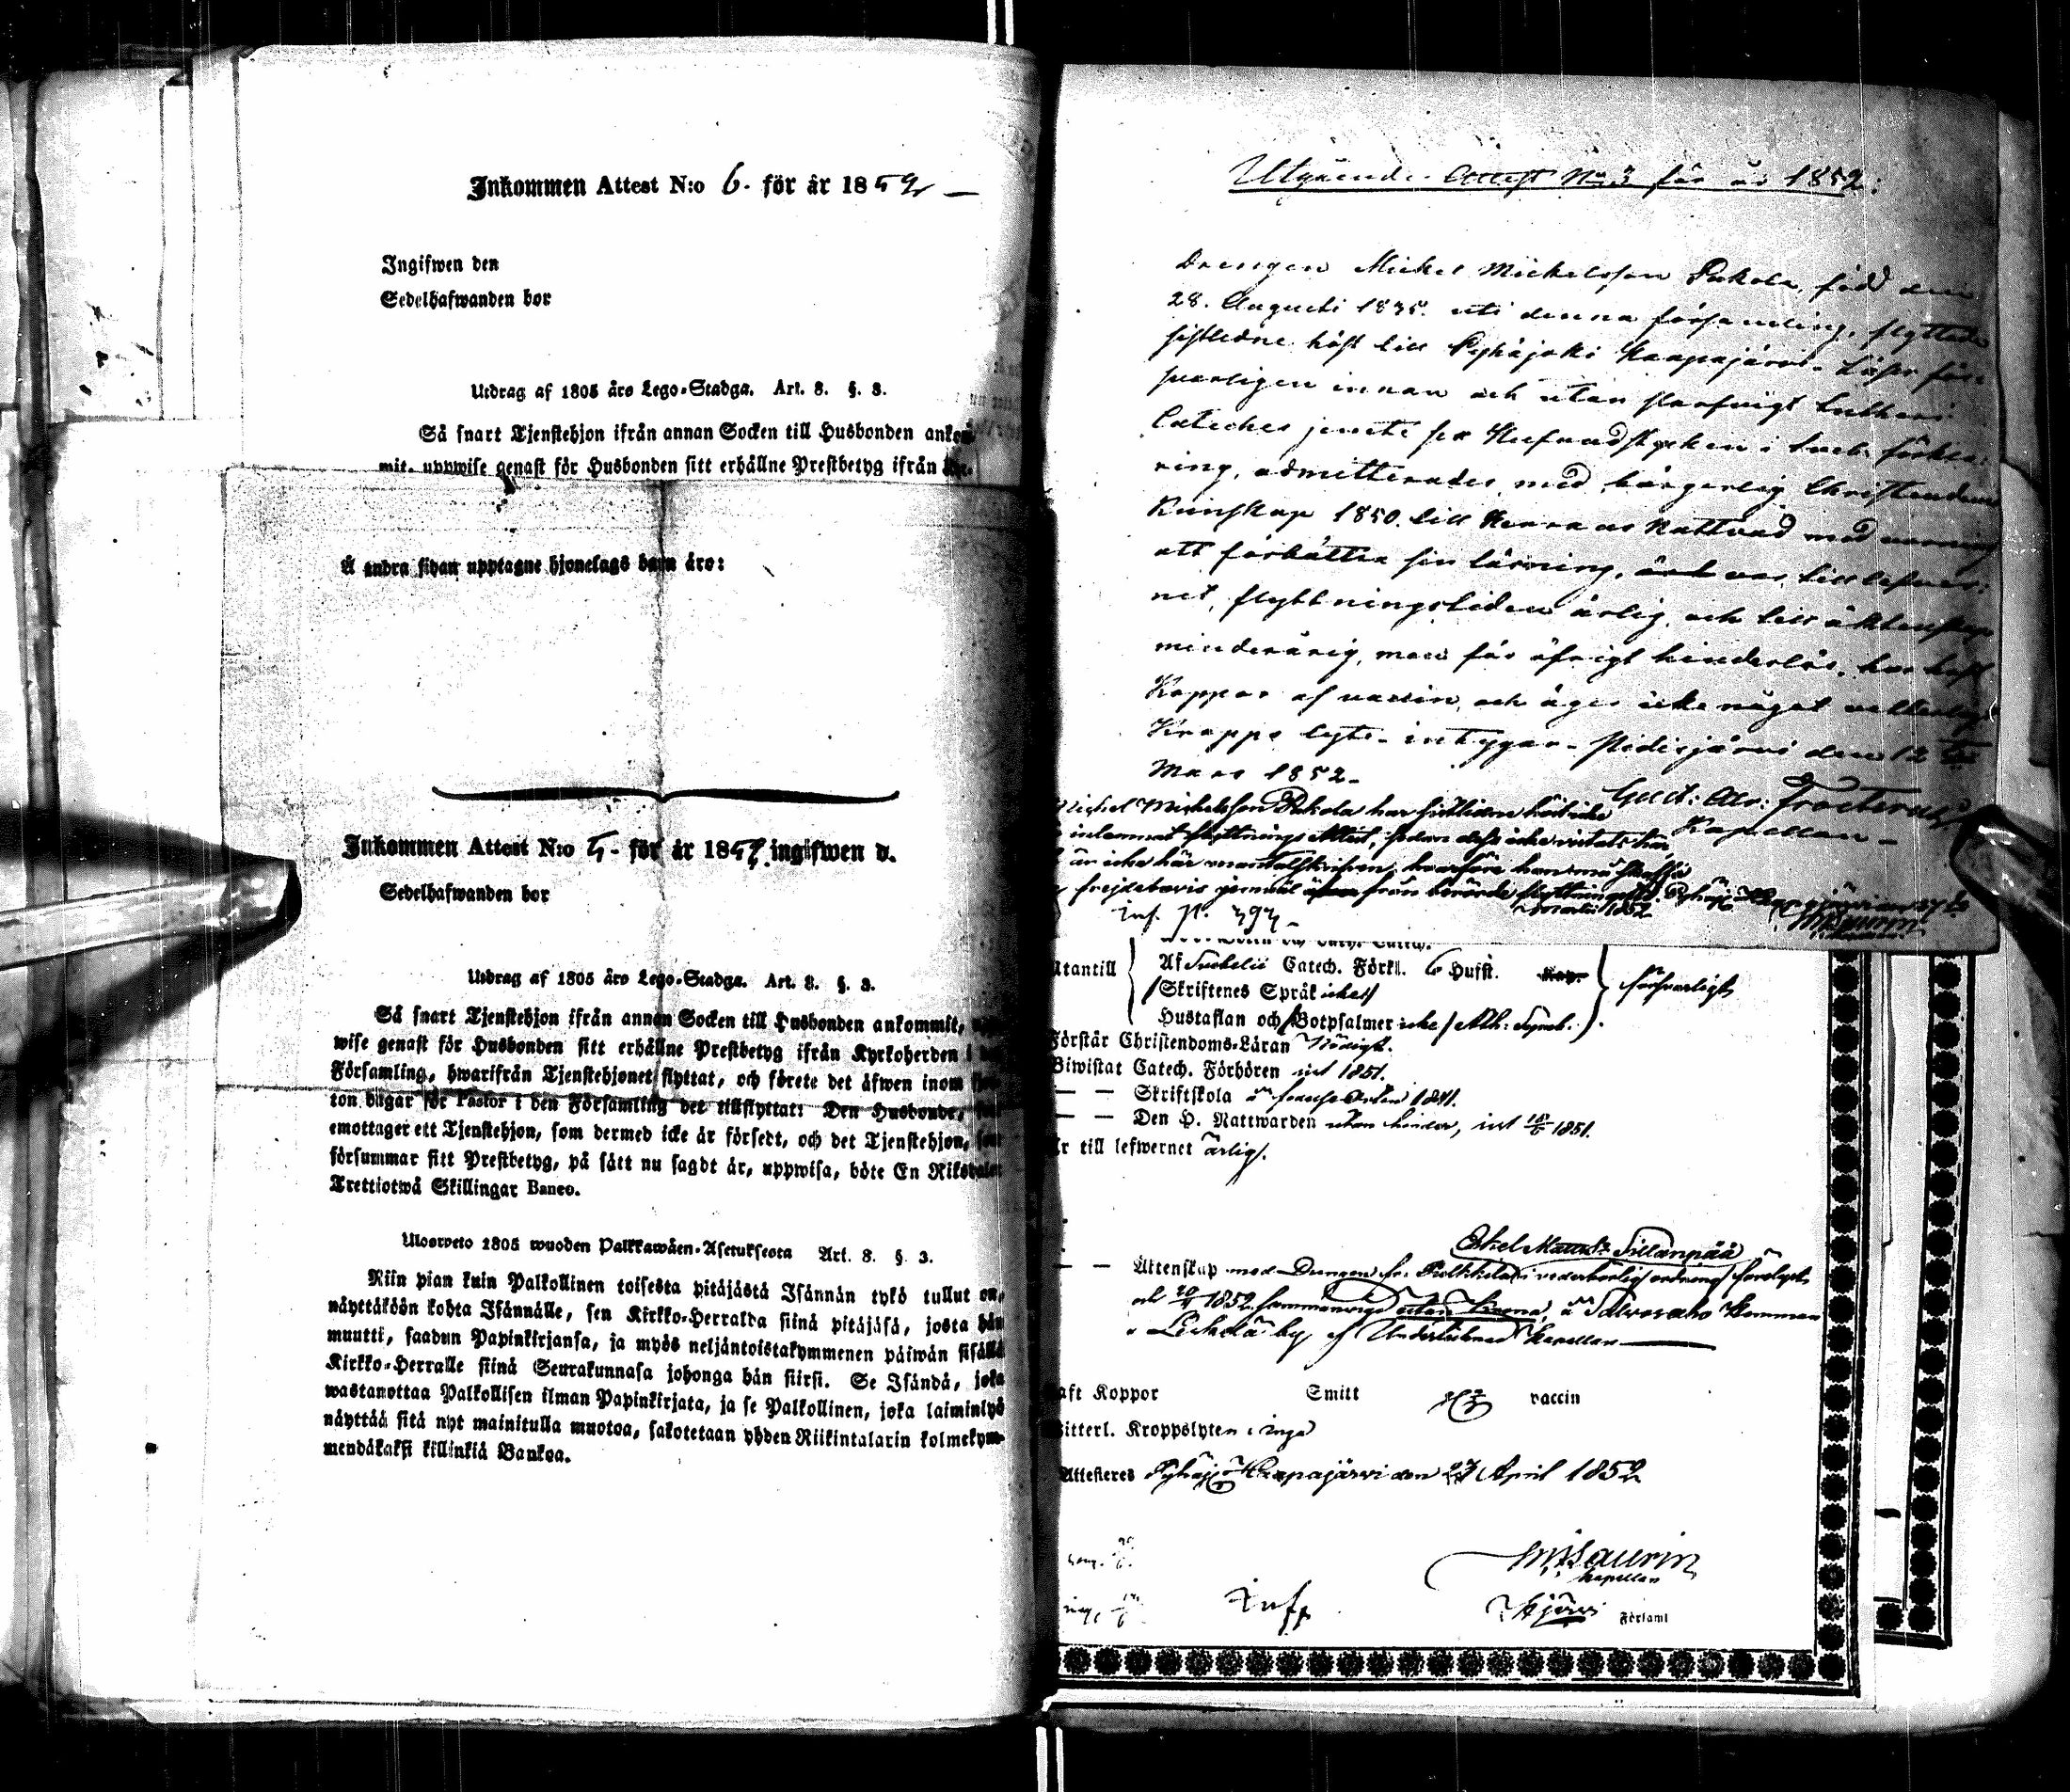 Inkommen Attest N:o 6. för år 1852 —
Ingifwen den
Sedelhafwanden bor
Utdrag af 1805 års Lego-Stadga. Art. 8. §. 3.
Så snart Tjenstehjon ifrån annan Socken till Husbonden ankom-
mit, uppwise genast för Husbonden sitt erhållne Prestbetyg ifrån
Å andra sidan upptagne hjonelags barn äro:
Inkommen Attest N:o 5. för år 1852 ingifwen d.
Sedelhafwanden bor
Utdrag af 1805 års Lego-Stadga. Art. 8. §. 3.
Så snart Tjenstehjon ifrån annan Socken till Husbonden ankommit,
wise genast för Husbonden sitt erhållne Prestbetyg ifrån Kyrkoherden i
Församling, hwarifrån Tjenstehjonet flyttat, och förete det äfwen inom
ton dagar för Pastor i den Församling det tillflyttat: Den Husbonde,
emottager ett Tjenstehjon, som dermed icke är försedt, och det Tjenstehjon, som
försummar sitt Prestbetyg, på sätt nu sagdt är, uppwisa, böte En Riksdaler
Trettiotwå Skillingar Banco.
Ulosweto 1805 wuoden Palkkawäen-Asetuksesta Art. 8. §. 3.
Niin pian kuin Palkollinen toisesta pitäjästä Isännän tykö tullut on,
näyttäköön kohta Isännälle, sen Kirkko-Herralda siinä pitäjäsä, josta hän
muutti, saadun Papinkirjansa, ja myös neljäntoistakymmenen päiwän sisällä
Kirkko-Herralle siinä Seurakunnasa johonga hän siirsi. Se Isändä, joka
wastanottaa Palkollisen ilman Papinkirjata, ja se Palkollinen, joka laiminlyö
näyttää sitä nyt mainitulla muotoa, sakotetaan yhden Riikintalarin kolmekym-
mendäkaksi killinkiä Bankoa.
Utgående Attest No 3 för år 1852:
Drengen Michel Michelsson Pukola, född den
28. Augusti 1835. uti denna församling, flyttade
sistledne höst till Pyhäjoki Haapajärvi. Läser för-
svarligen innan och utan Lutheri
Cateches jemte sex Hufvudstycken i Sveb. förkla-
ring, admitterades med hörgerlig Christendoms
Kunskap 1850. till Herrans Nattvard med varning
att förbättra sin läsning, var till lefver-
net, flyttningstiden ärlig, och till äktenskap
minderårig, men för öfrigt hinderlös, har haft
Koppor af vaccin, och äger icke något vetterligt
Kropps lyte. intygar. Pidisjärvi den 12
Mars 1852.
Gust: Frosterus
Kapellan
Michel Michelsson Pukola har sistliden höst icke
inlemnat flyttnings Attest, sedan dess icke vistats här
är icke här mantalskrifven, hvarföre han må skaffa
frejdebevis från
Martii 1852
inf. p. 393.
Utantill
Af Svebelii Catech. Förkl. 6 Hufst.
Skriftenes Språk icke
Hustaflan och Botpsalmer icke Ath: Symb.
försvarligt
Förstår Christendoms-Läran Nödigt.
Biwistat Catech. Förhören sist 1851.
— — Skriftskola 1841.
— — Den H. Nattwarden utan hinder, sist 1851.
Är till lefwernet ärlig.
Mattsr Sillanpää
— — Äktenskap med Drengen
1852
by, af Undertecknad Kapellan
Haft Koppor Smitt vaccin
Witterl. Kroppslyten: inga
Attesteres Pyhäjo Haapajärvi den 27 April 1852
Kapellan
Församl